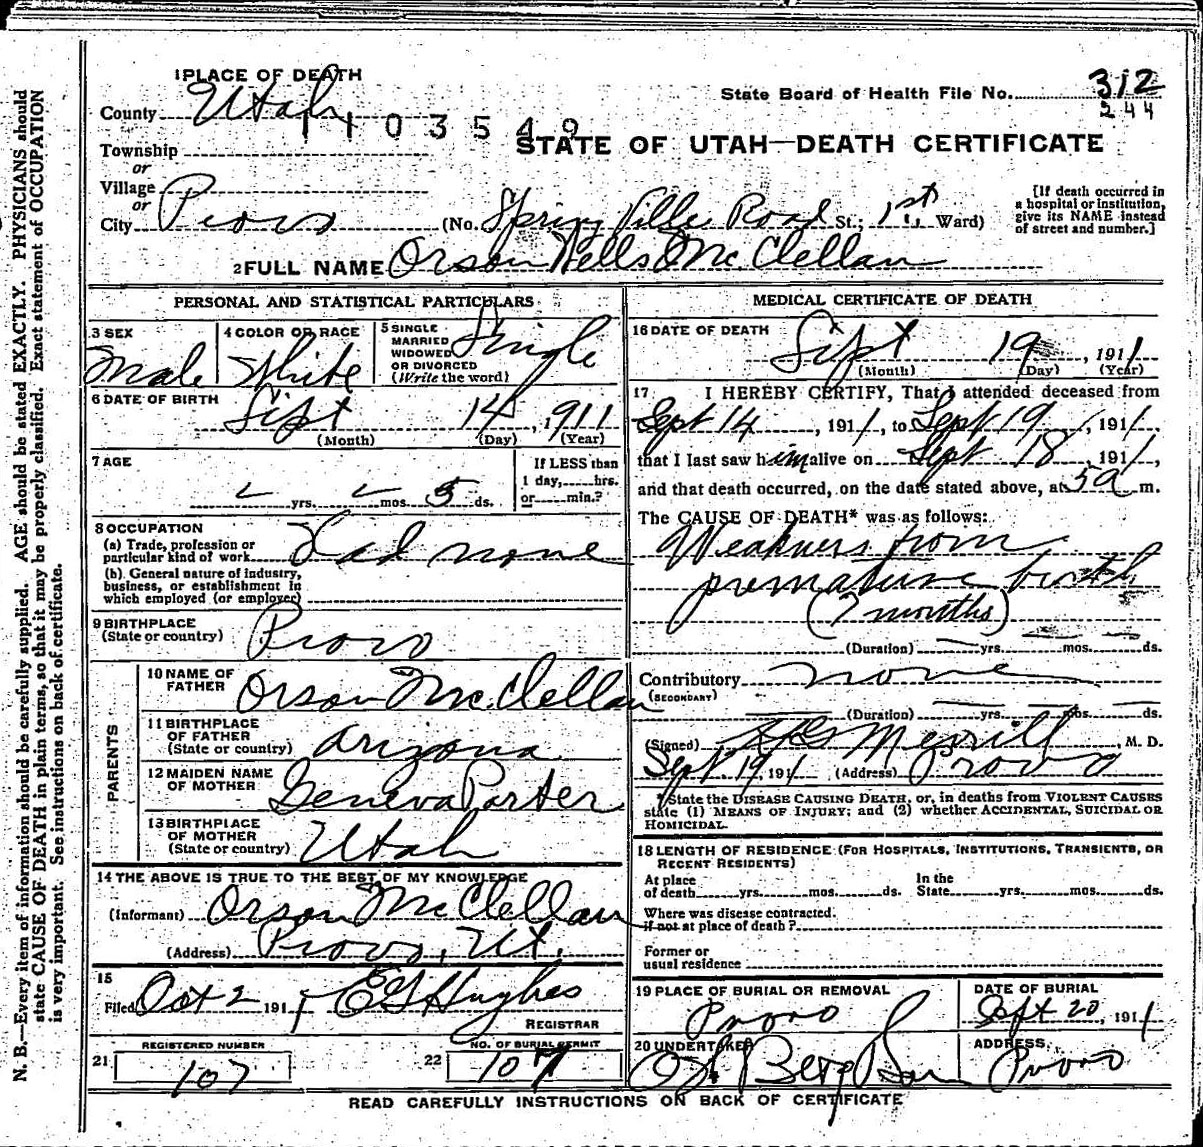 1 PLACE OF DEATH
County Utah
State Board of Health File No. 312
244
1103549
STATE OF UTAH—DEATH CERTIFICATE
Township
or
Village
or
City Provo (No. Spring Ville Road St.; 1st Ward)
[If death occurred in a hospital or institution, give its NAME instead of street and number.]
2 FULL NAME Orson Wells Mc.Clellan
PERSONAL AND STATISTICAL PARTICULARS
3 SEX Male
4 COLOR OR RACE White
5 SINGLE MARRIED WIDOWED OR DIVORCED (Write the word) Single
6 DATE OF BIRTH
Sept 14, 1911
(Month) (Day) (Year)
7 AGE
yrs. mos. 5 ds.
If LESS than 1 day, hrs. or min.?
8 OCCUPATION
(a) Trade, profession or particular kind of work Had none
(b) General nature of industry, business, or establishment in which employed (or employer)
9 BIRTHPLACE
(State or country) Provo
PARENTS
10 NAME OF FATHER Orson Mc.Clellan
11 BIRTHPLACE OF FATHER (State or country) Arizona
12 MAIDEN NAME OF MOTHER Geneva Porter
13 BIRTHPLACE OF MOTHER (State or country) Utah
14 THE ABOVE IS TRUE TO THE BEST OF MY KNOWLEDGE
(Informant) Orson McClellan
(Address) Provo, Ut.
15
Filed Oct 2 1911 EG Hughes
REGISTRAR
21 REGISTERED NUMBER 107
22 NO. OF BURIAL PERMIT 107
MEDICAL CERTIFICATE OF DEATH
16 DATE OF DEATH
Sept 19, 1911
(Month) (Day) (Year)
17 I HEREBY CERTIFY, That I attended deceased from
Sept 14, 1911, to Sept 19, 1911,
that I last saw him alive on Sept 18, 1911,
and that death occurred, on the date stated above, at 5 a m.
The CAUSE OF DEATH* was as follows:
Weakness from
premature birth
(7 months)
(Duration) yrs. mos. ds.
Contributory none
(SECONDARY)
(Duration) yrs. mos. ds.
(Signed) Merrill, M. D.
Sept. 19, 1911 (Address) Provo
*State the DISEASE CAUSING DEATH, or, in deaths from VIOLENT CAUSES
state (1) MEANS OF INJURY; and (2) whether ACCIDENTAL, SUICIDAL OR
HOMICIDAL.
18 LENGTH OF RESIDENCE (FOR HOSPITALS, INSTITUTIONS, TRANSIENTS, OR
RECENT RESIDENTS)
At place of death yrs. mos. ds. In the State yrs. mos. ds.
Where was disease contracted,
if not at place of death?
Former or
usual residence
19 PLACE OF BURIAL OR REMOVAL Provo
DATE OF BURIAL Sept 20, 1911
20 UNDERTAKER Berg & Son
ADDRESS Provo
READ CAREFULLY INSTRUCTIONS ON BACK OF CERTIFICATE
N. B.—Every item of information should be carefully supplied. AGE should be stated EXACTLY. PHYSICIANS should
state CAUSE OF DEATH in plain terms, so that it may be properly classified. Exact statement of OCCUPATION
is very important. See instructions on back of certificate.